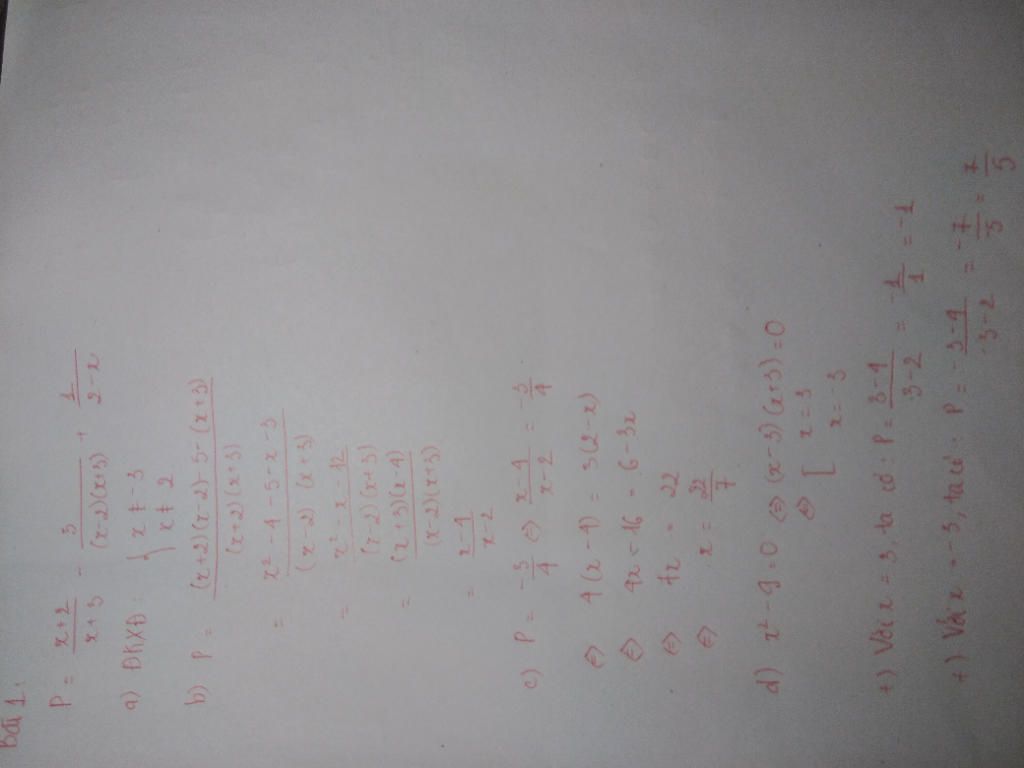 Bài 1:
P = \frac{x+2}{x+3} - \frac{5}{(x-2)(x+3)} + \frac{1}{2-x}
a) ĐKXĐ: { x ≠ -3
x ≠ 2
b) P = \frac{(x+2)(x-2)-5-(x+3)}{(x+2)(x+3)}
= \frac{x² - 4 - 5 - x - 3}{(x-2)(x+3)}
= \frac{x² - x - 12}{(x-2)(x+3)}
= \frac{(x+3)(x-4)}{(x-2)(x+3)}
= \frac{x-4}{x-2}
c) P = \frac{-3}{4} ⇔ \frac{x-4}{x-2} = \frac{-3}{4}
⇔ 4(x-4) = 3(2-x)
⇔ 4x - 16 = 6 - 3x
⇔ 7x = 22
⇔ x = \frac{22}{7}
d) x² - 9 = 0 ⇔ (x-3)(x+3) = 0
⇔ [ x = 3
x = -3
+) Với x = 3, ta có: P = \frac{3-4}{3-2} = \frac{-1}{1} = -1
+) Với x = -3, ta có: P = \frac{-3-4}{-3-2} = \frac{-7}{-5} = \frac{7}{5}